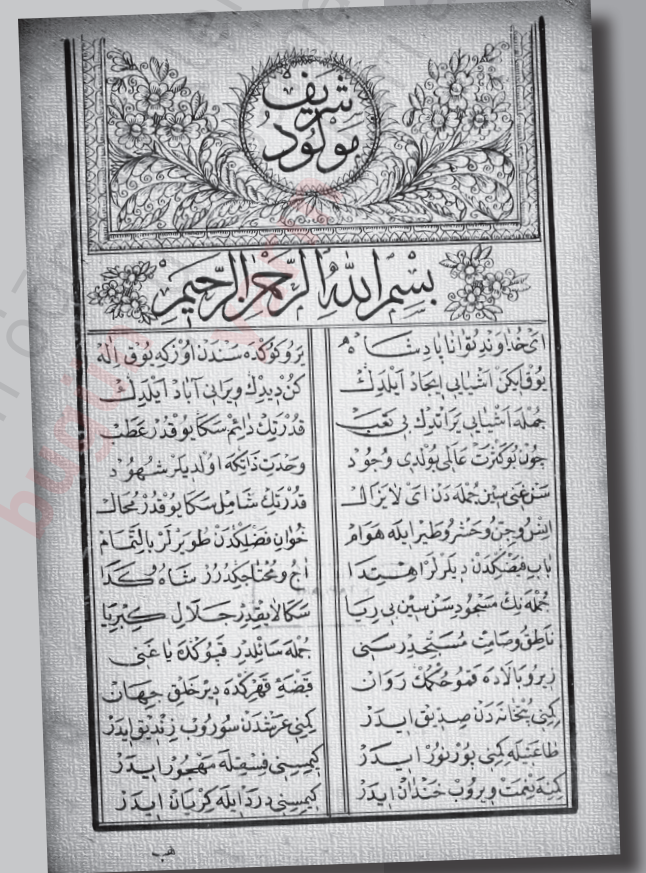 مولود
شريف
بسم الله الرحمن الرحيم
اى خداوند توانا پادشاه
يوغايكن اشيايى ايجاد ايلدك
جمله اشيايى يراتدك بى تعب
چون بو كثرت عالمى بولدى وجود
سن غنى سين جمله دن اى لا يزال
انس و جن و حشر و طير ايله هوام
باب فيضكدن ديلرلر اهتدا
جمله نك مسجود سن سين بى ريا
ناطق و صامت مسبحدر سنى
زير و بالاده قمو حكمك روان
كمى بتخانه دن صديق ايدر
طاعتيله كمى پور نور ايدر
كمنه نعمت ويروب خندان ايدر
بر و كوكده سندن اوزكه يوق اله
كن ديدك ويرانى آباد ايلدك
قدرتك دائم سكا يوقدر عطب
وحدت ذاتكه اولديلر شهود
قدرتك شامل سكا يوقدر محال
خوان فضلكدن طويرلر بالتمام
آج و محتاجكدرر شاه و كدا
سكا لايقدر جلال كبريا
جمله سائلدر قپوكده يا غنى
قبضه قهركده دير خلق جهان
كمى عرشدن سوروب زنديق ايدر
كيمسنى فسقيله مهجور ايدر
كيمسنى درد ايله كريان ايدر
bugün